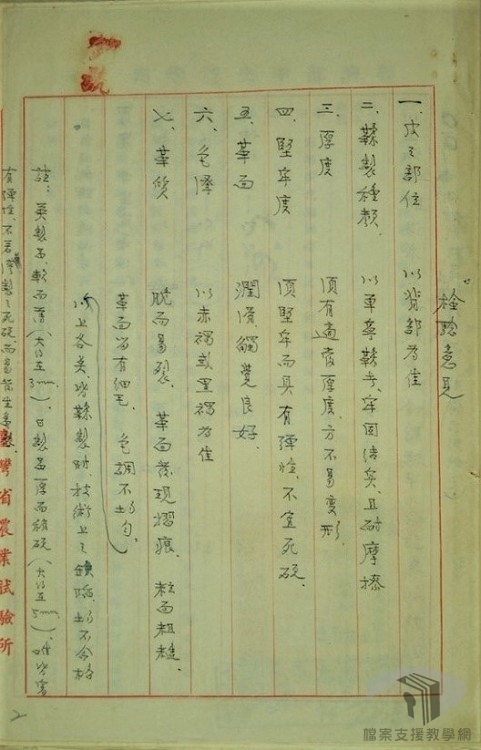 檢驗意見
一、皮之部位 以背部為佳
二、鞣製種類 以單寧鞣者、牢固結實、且耐摩擦
三、厚度 須有適當厚度、方不易變形
四、堅牢度 須堅牢而具有彈性、不宜死硬
五、革面 潤滑、觸覺良好
六、色澤 以赤褐或黑褐為佳
七、革質 脆而易裂、革面發現摺痕、粒面粗糙
革面留有細毛、色調不均勻
以上各點、皆鞣製時、技術上之缺陷、均不合格
註：英製品、軟而薄(大約在3mm)、日製品厚而稍硬(大約在5mm)、唯皆富
有彈性、不若
灣省農業試驗所
2
檔案支援教學網